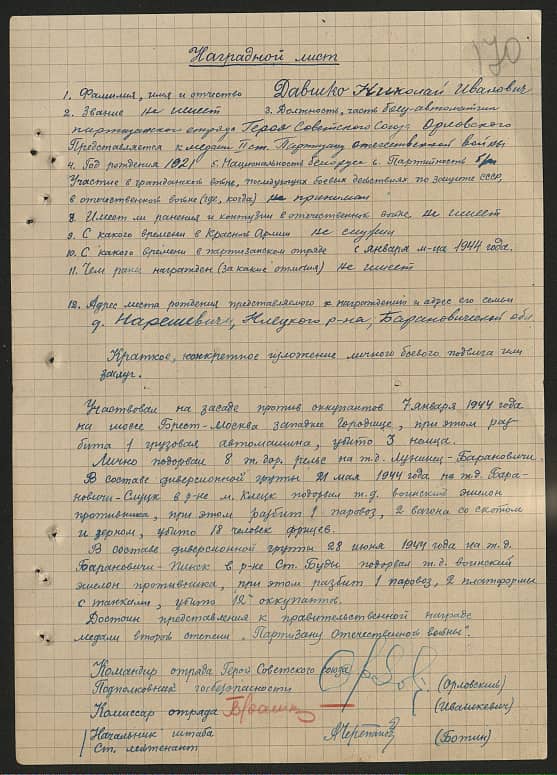 170
Наградной лист
1. Фамилия, имя и отчество Давшко Николай Иванович
2. Звание не имеет 3. Должность, часть боец-автоматчик
партизанского отряда Героя Советского Союз. Орловского
Представляется к медали II ст. Партизану отечественной войны
4. Год рождения 1921 5. Национальность белорус 6. Партийность б/п
Участие в гражданской войне, последующих боевых действиях по защите СССР,
в отечественной войне (где, когда) не принимал
8. Имеет ли ранения и контузии в отечественной войне не имеет
9. С какого времени в Красной Армии не служил
10. С какого времени в партизанском отряде с января м-ца 1944 года.
11. Чем ранее награжден (за какие отличия) не имеет
12. Адрес места рождения представляемого к награждению и адрес его семьи
д. Нарешевичи, Клецкого р-на, Барановической обл.
Краткое, конкретное изложение личного боевого подвига или
заслуг.
Участвовал на засаде против оккупантов 7 января 1944 года
на шоссе Брест-Москва западнее Городище, при этом раз-
бита 1 грузовая автомашина, убито 3 немца.
Лично подорвал 8 ж.дор. рельс на ж.д. Лунинец-Барановичи.
В составе диверсионной группы 21 мая 1944 года на ж.д. Бара-
новичи-Слуцк в р-не м. Клецк подорвал ж.д. воинский эшелон
противника, при этом разбит 1 паровоз, 2 вагона со скотом
и зерном, убито 18 человек фрицев.
В составе диверсионной группы 28 июня 1944 года на ж.д.
Барановичи-Пинск в р-не Ст. Буды подорвал ж.д. воинский
эшелон противника, при этом развит 1 паровоз, 2 платформы
с танками, убито 12 оккупантов.
Достоин представления к правительственной награде
медали второй степени „Партизану Отечественной войны".
Командир отряда Герой Советского Союза
Подполковник госбезопасности (Орловский)
Комиссар отряда (Ивашкевич)
Начальник штаба
Ст. лейтенант (Ботин)